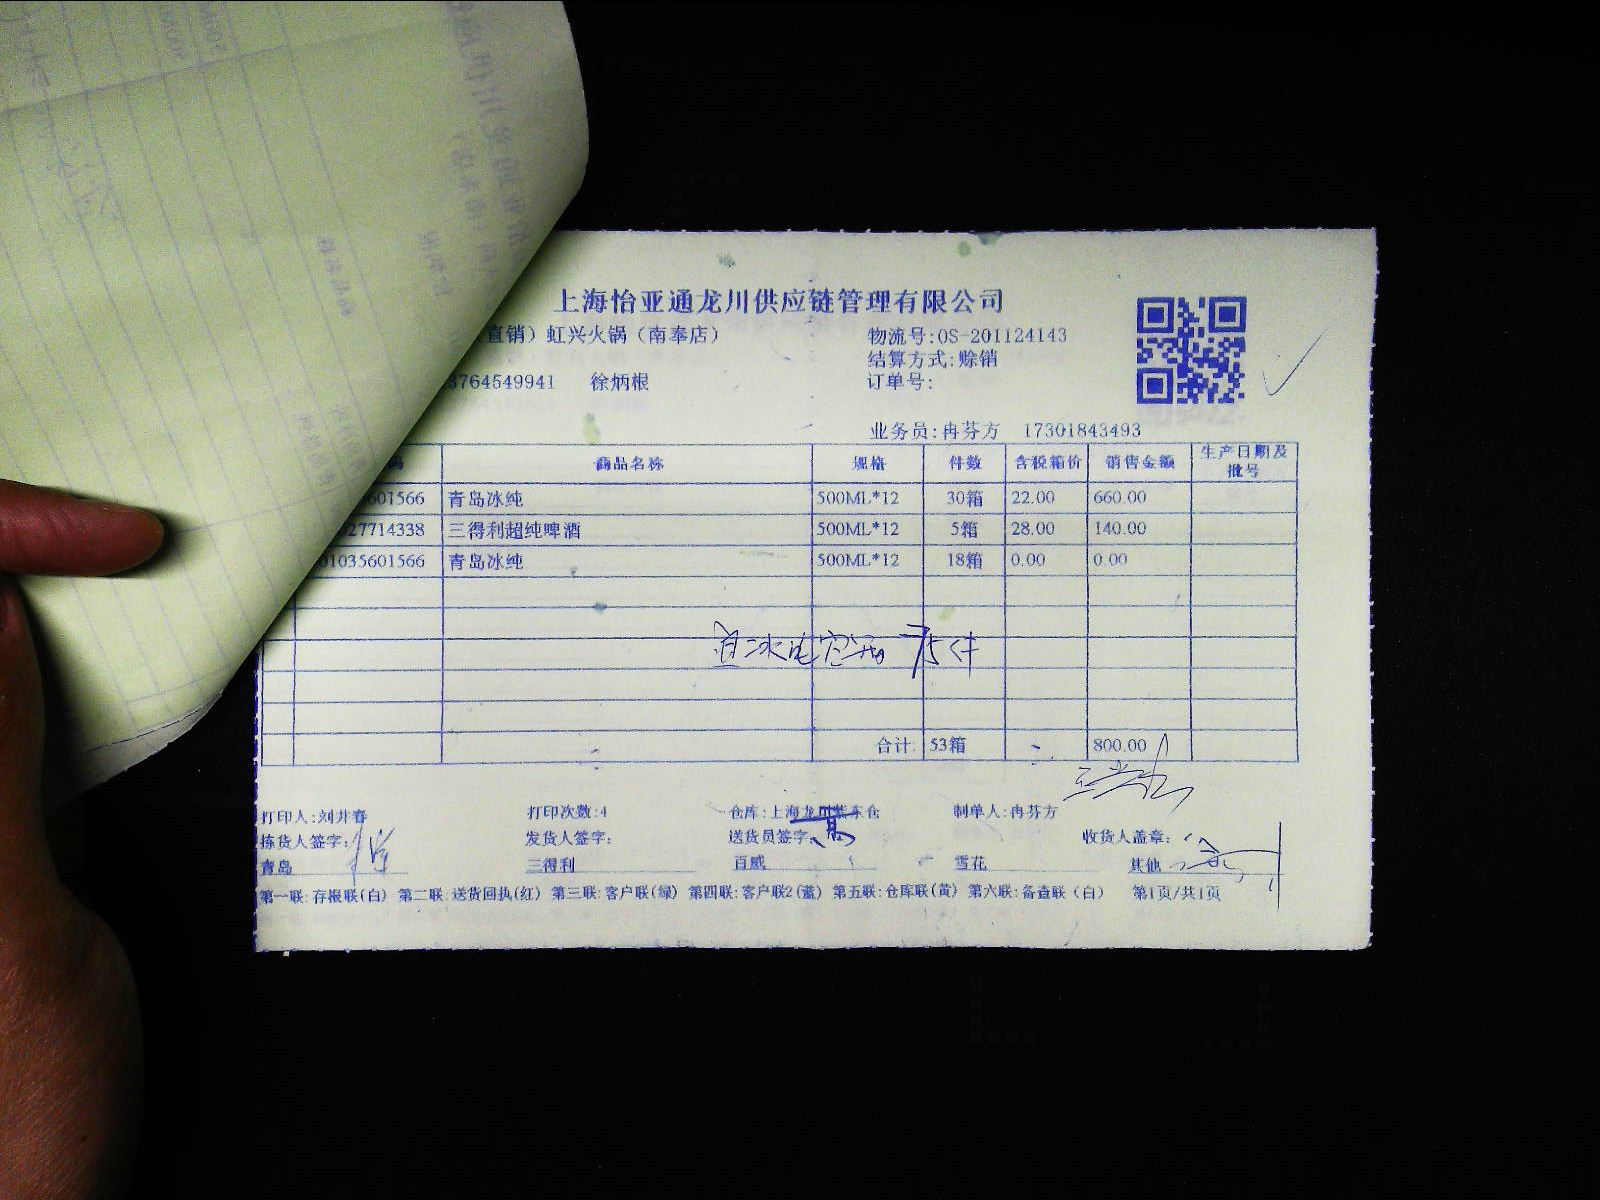 上海怡亚通龙川供应链管理有限公司
直销）虹兴火锅（南奉店）
物流号:OS-201124143
结算方式:赊销
3764549941 徐炳根
订单号:
业务员:冉芬方 17301843493
商品名称 规格 件数 含税箱价 销售金额 生产日期及批号
5601566 青岛冰纯 500ML*12 30箱 22.00 660.00
27714338 三得利超纯啤酒 500ML*12 5箱 28.00 140.00
01035601566 青岛冰纯 500ML*12 18箱 0.00 0.00
合计: 53箱 800.00
打印人:刘井春 打印次数:4 仓库:上海龙川紫东仓 制单人:冉芬方
拣货人签字: 发货人签字: 送货员签字: 收货人盖章:
青岛 三得利 百威 雪花 其他
第一联:存根联(白) 第二联:送货回执(红) 第三联:客户联(绿) 第四联:客户联2(蓝) 第五联:仓库联(黄) 第六联:备查联（白） 第1页/共1页